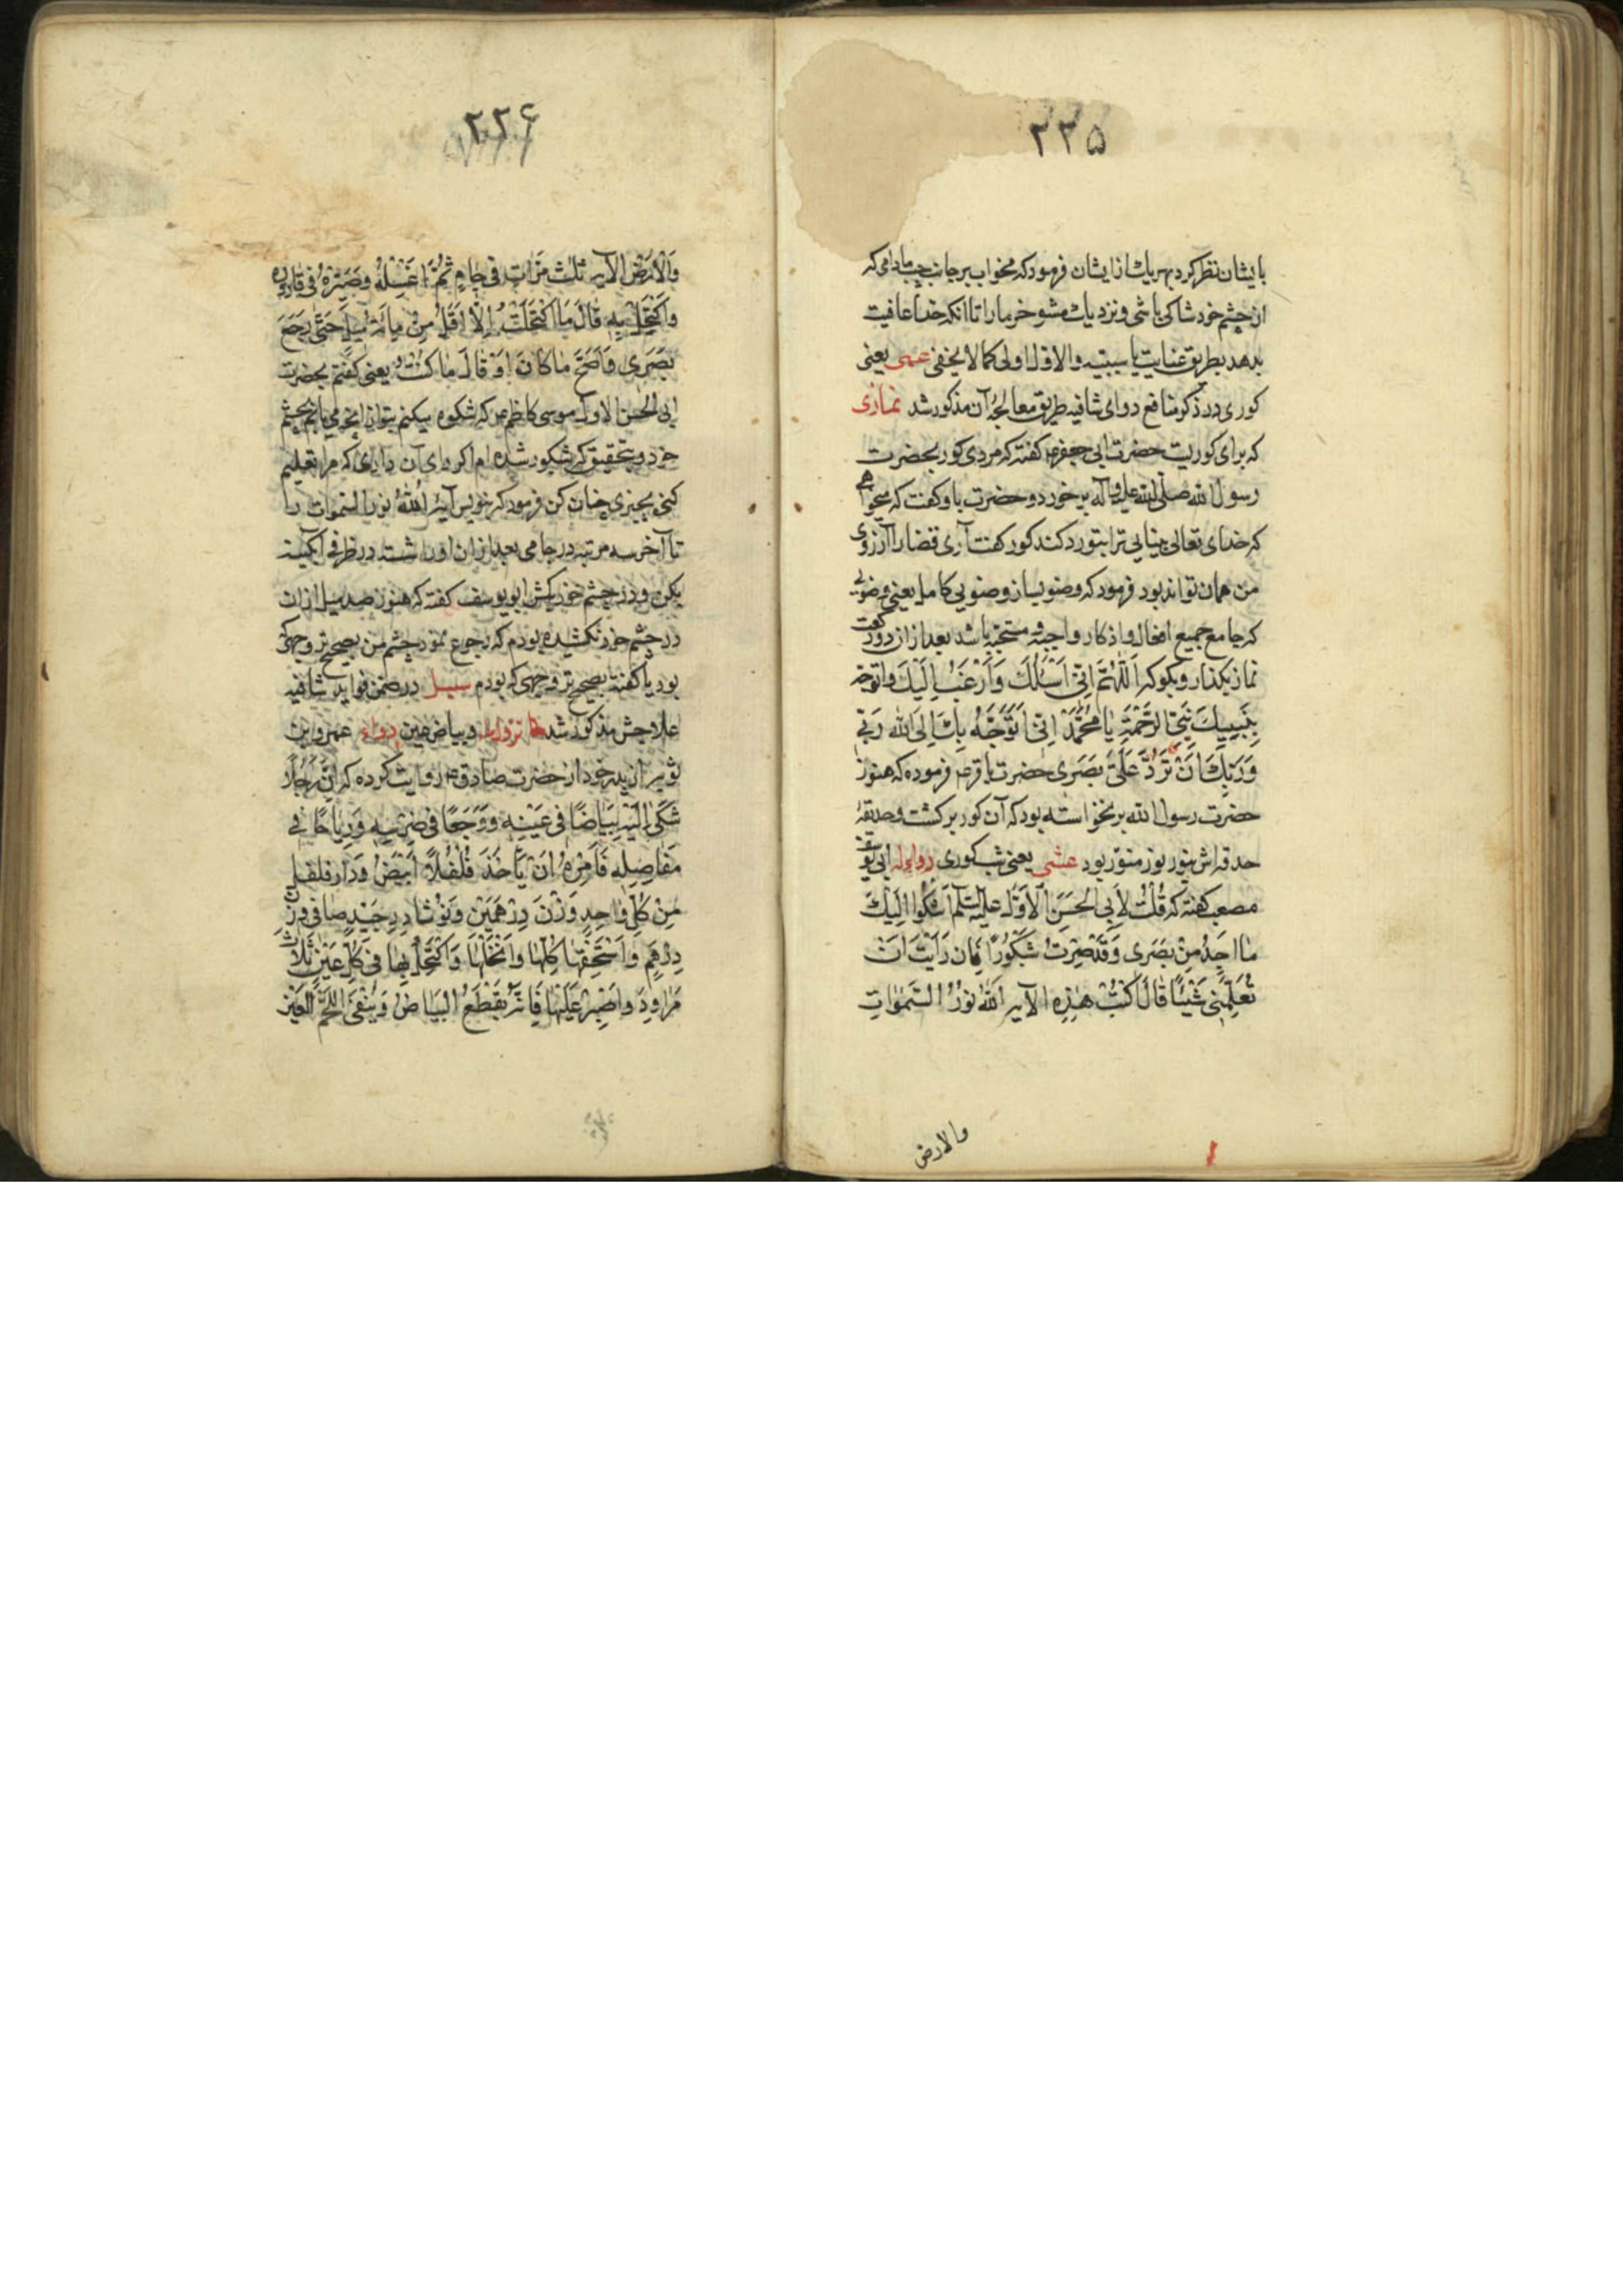 ۲۲۵
بایشان نظر کرد بهر یک از ایشان فرمود که مخواب بر جانب چپ مادامی که
از چشم خود شاکی باشی و نزدیک مشو خرما را تا انکه خدا عافیت
بدهد بطریق عنایت یا سببیه والاول اولی کما لا یخفی عمی یعنی
کوری در ذکر منافع دوای شافیه طریق معالجهٔ آن مذکور شد نمازی
که برای کوریست حضرت ابی جعفر گفته که مردی کور بحضرت
رسول الله صلی الله علیه وآله بر خورد و حضرت باو گفت که میخواهی
که خدای تعالی بینایی ترا بتو رد کند کور گفت آری قضا را آرزوی
من همان تواند بود فرمود که وضو بساز وضویی کامل یعنی وضوئی
که جامع جمیع افعال و اذکار واجبه و مستحبه باشد بعد از آن دو رکعت
نماز بکذار و بکو که اَللّٰهُمَّ اِنّی اَسْئَلُکَ وَاَرْغَبُ اِلَیْکَ واتوجه
بِنَبِیِّکَ نَبِیِّ الرَّحْمَةِ یٰا مُحَمَّدُ اِنّی اَتَوَجَّهُ بِکَ اِلَی اللّٰهِ رَبّی
وَرَبِّکَ اَنْ تَرُدَّ عَلَیَّ بَصَری حضرت باقر فرموده که هنوز
حضرت رسول الله برنخواسته بود که آن کور بر کشت و حدیقهٔ
حدقه اش بنور نور منور بود عشی یعنی شبکوری دواء له ابی یوسف
مصعب گفته که قُلْتُ لِاَبی الحَسَنِ الاَوَّلِ علیه السّلم اَشْکُوا اِلَیْکَ
مٰا اَجِدُ مِنْ بَصَری وَقَدْ صِرْتُ شَبْکُورًا فَاِن رَاَیْتَ اَنْ
تُعَلِّمَنی شَیْئًا قٰالَ اکْتُبْ هٰذِهِ الآیه اَللّٰهُ نُورُ السَّمٰوٰاتِ
والارض
۲۲۶
وَالاَرْضِ الآیه ثلٰث مَرّٰاتٍ فی جٰامٍ ثُمَّ اغْسِلْهُ وَصَیِّرْهُ فی قٰارُورَه
وَاکْتَحِلْ بِهِ قٰالَ مَا اکْتَحَلْتُ اِلّٰا اَقَلَّ مِنْ مِائَةِ مِیلٍ حَتّٰی رَجَعَ
بَصَری وَاَصَحَّ مٰا کٰانَ اَوْ قٰالَ مٰا کُنْتُ یعنی گفتم بحضرت
ابی الحسن الاول موسی کاظم که شکوه میکنم بتو از انچه می یابم بچشم
خود و بتحقیق که شبکور شده ام اکر رای آن داری که مرا تعلیم
کنی بچیزی چنان کن فرمود که بنویس آیهٔ اَللّٰهُ نور السّموات را
تا آخر سه مرتبه در جامی بعد از ان اورا شسته در ظرف آبکینه
بکن و در چشم خود کش ابو یوسف گفته که هنوز صد میل از ان
در چشم خود نکشیده بودم که رجوع نمود چشم من بصحیح تر وجهی که
بود یا گفت بصحیح تر وجهی که بودم سبل در ضمن فواید شافیه
علاجش مذکور شد و بیاض عین دواء عمرو ابن
از پدر خود از حضرت صادق روایت کرده که اِنَّ رَجُلًا
شَکیٰ اِلَیْهِ بَیٰاضًا فی عَیْنِهِ وَوَجَعًا فی ضِرْسِهِ وَرِیٰاحًا فی
مَفٰاصِلِهِ فَاَمَرَهُ اَنْ یَأخُذَ فُلْفُلًا اَبْیَضَ وَدٰار فلفل
مِنْ کُلِّ وٰاحِدٍ وَزْنَ دِرْهَمَیْنِ وَنَوْشٰادِرِ جَیِّدٍ صٰافی وزن
دِرْهَمٍ وَاسْحَقْهٰا کُلَّهٰا وَانْخُلْهٰا وَاکْتَحِلْ بِهٰا فی کُلِّ عَیْنٍ ثَلٰاثَ
مَرٰاوِدَ وَاصْبِرْ عَلَیْهٰا فَاِنَّهُ یَقْطَعُ البَیٰاضَ وَیُنَقّی اللَّحْمَ العَیْنِ